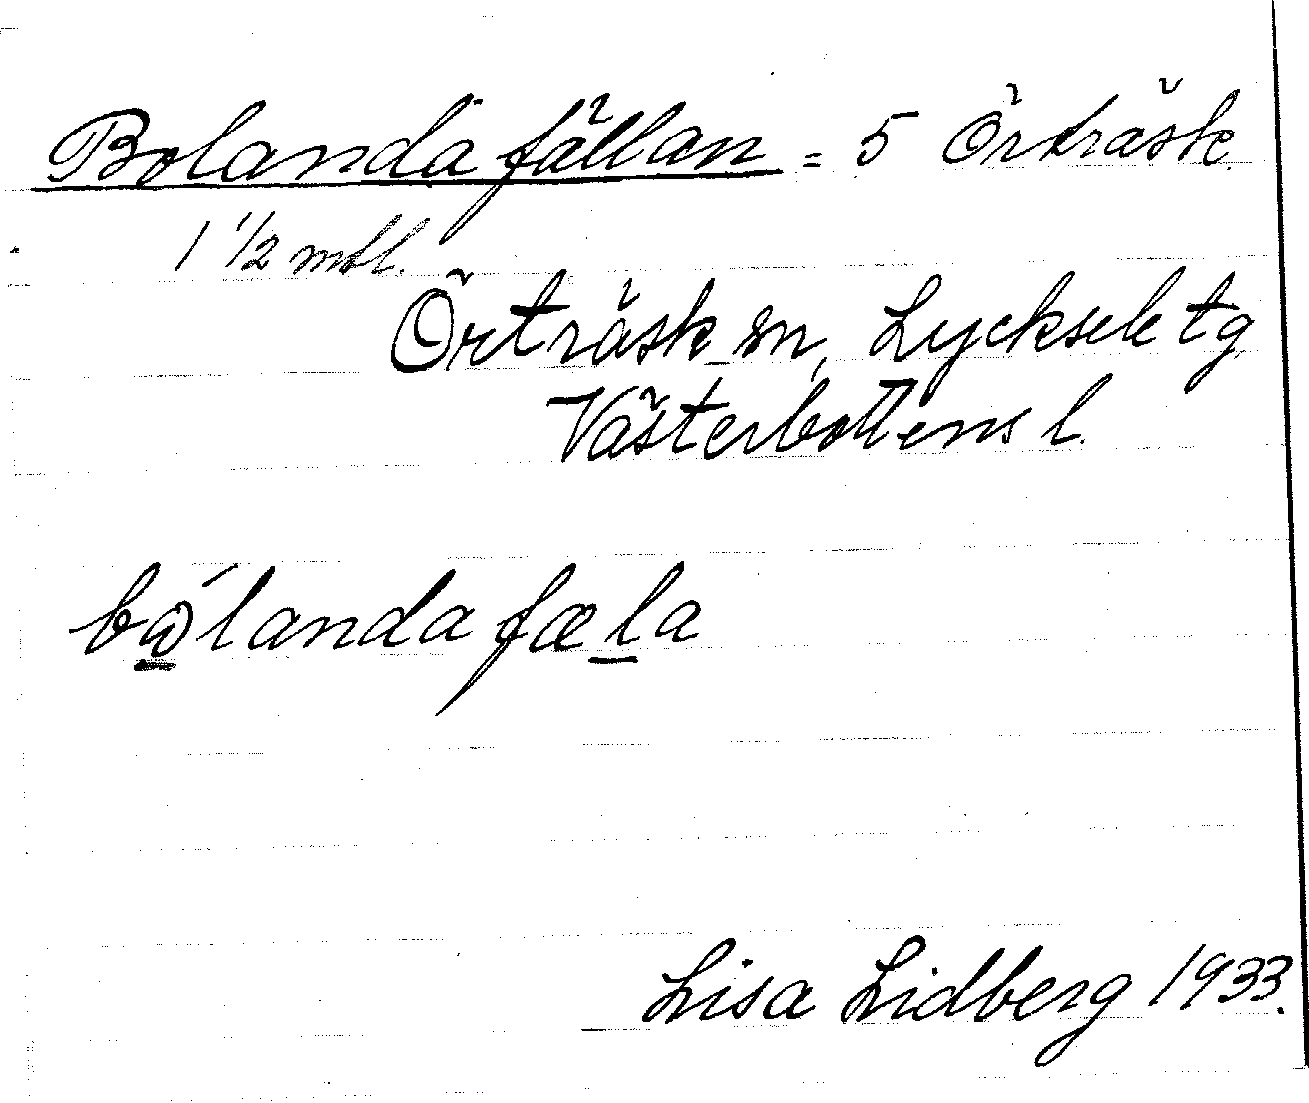 Bolandafällan = 5 Örträsk
1 1/2 mtl.
Örträsk sn, Lycksele tg
Västerbottens l.
bώ̲landafæl̲a
Lisa Lidberg 1933.